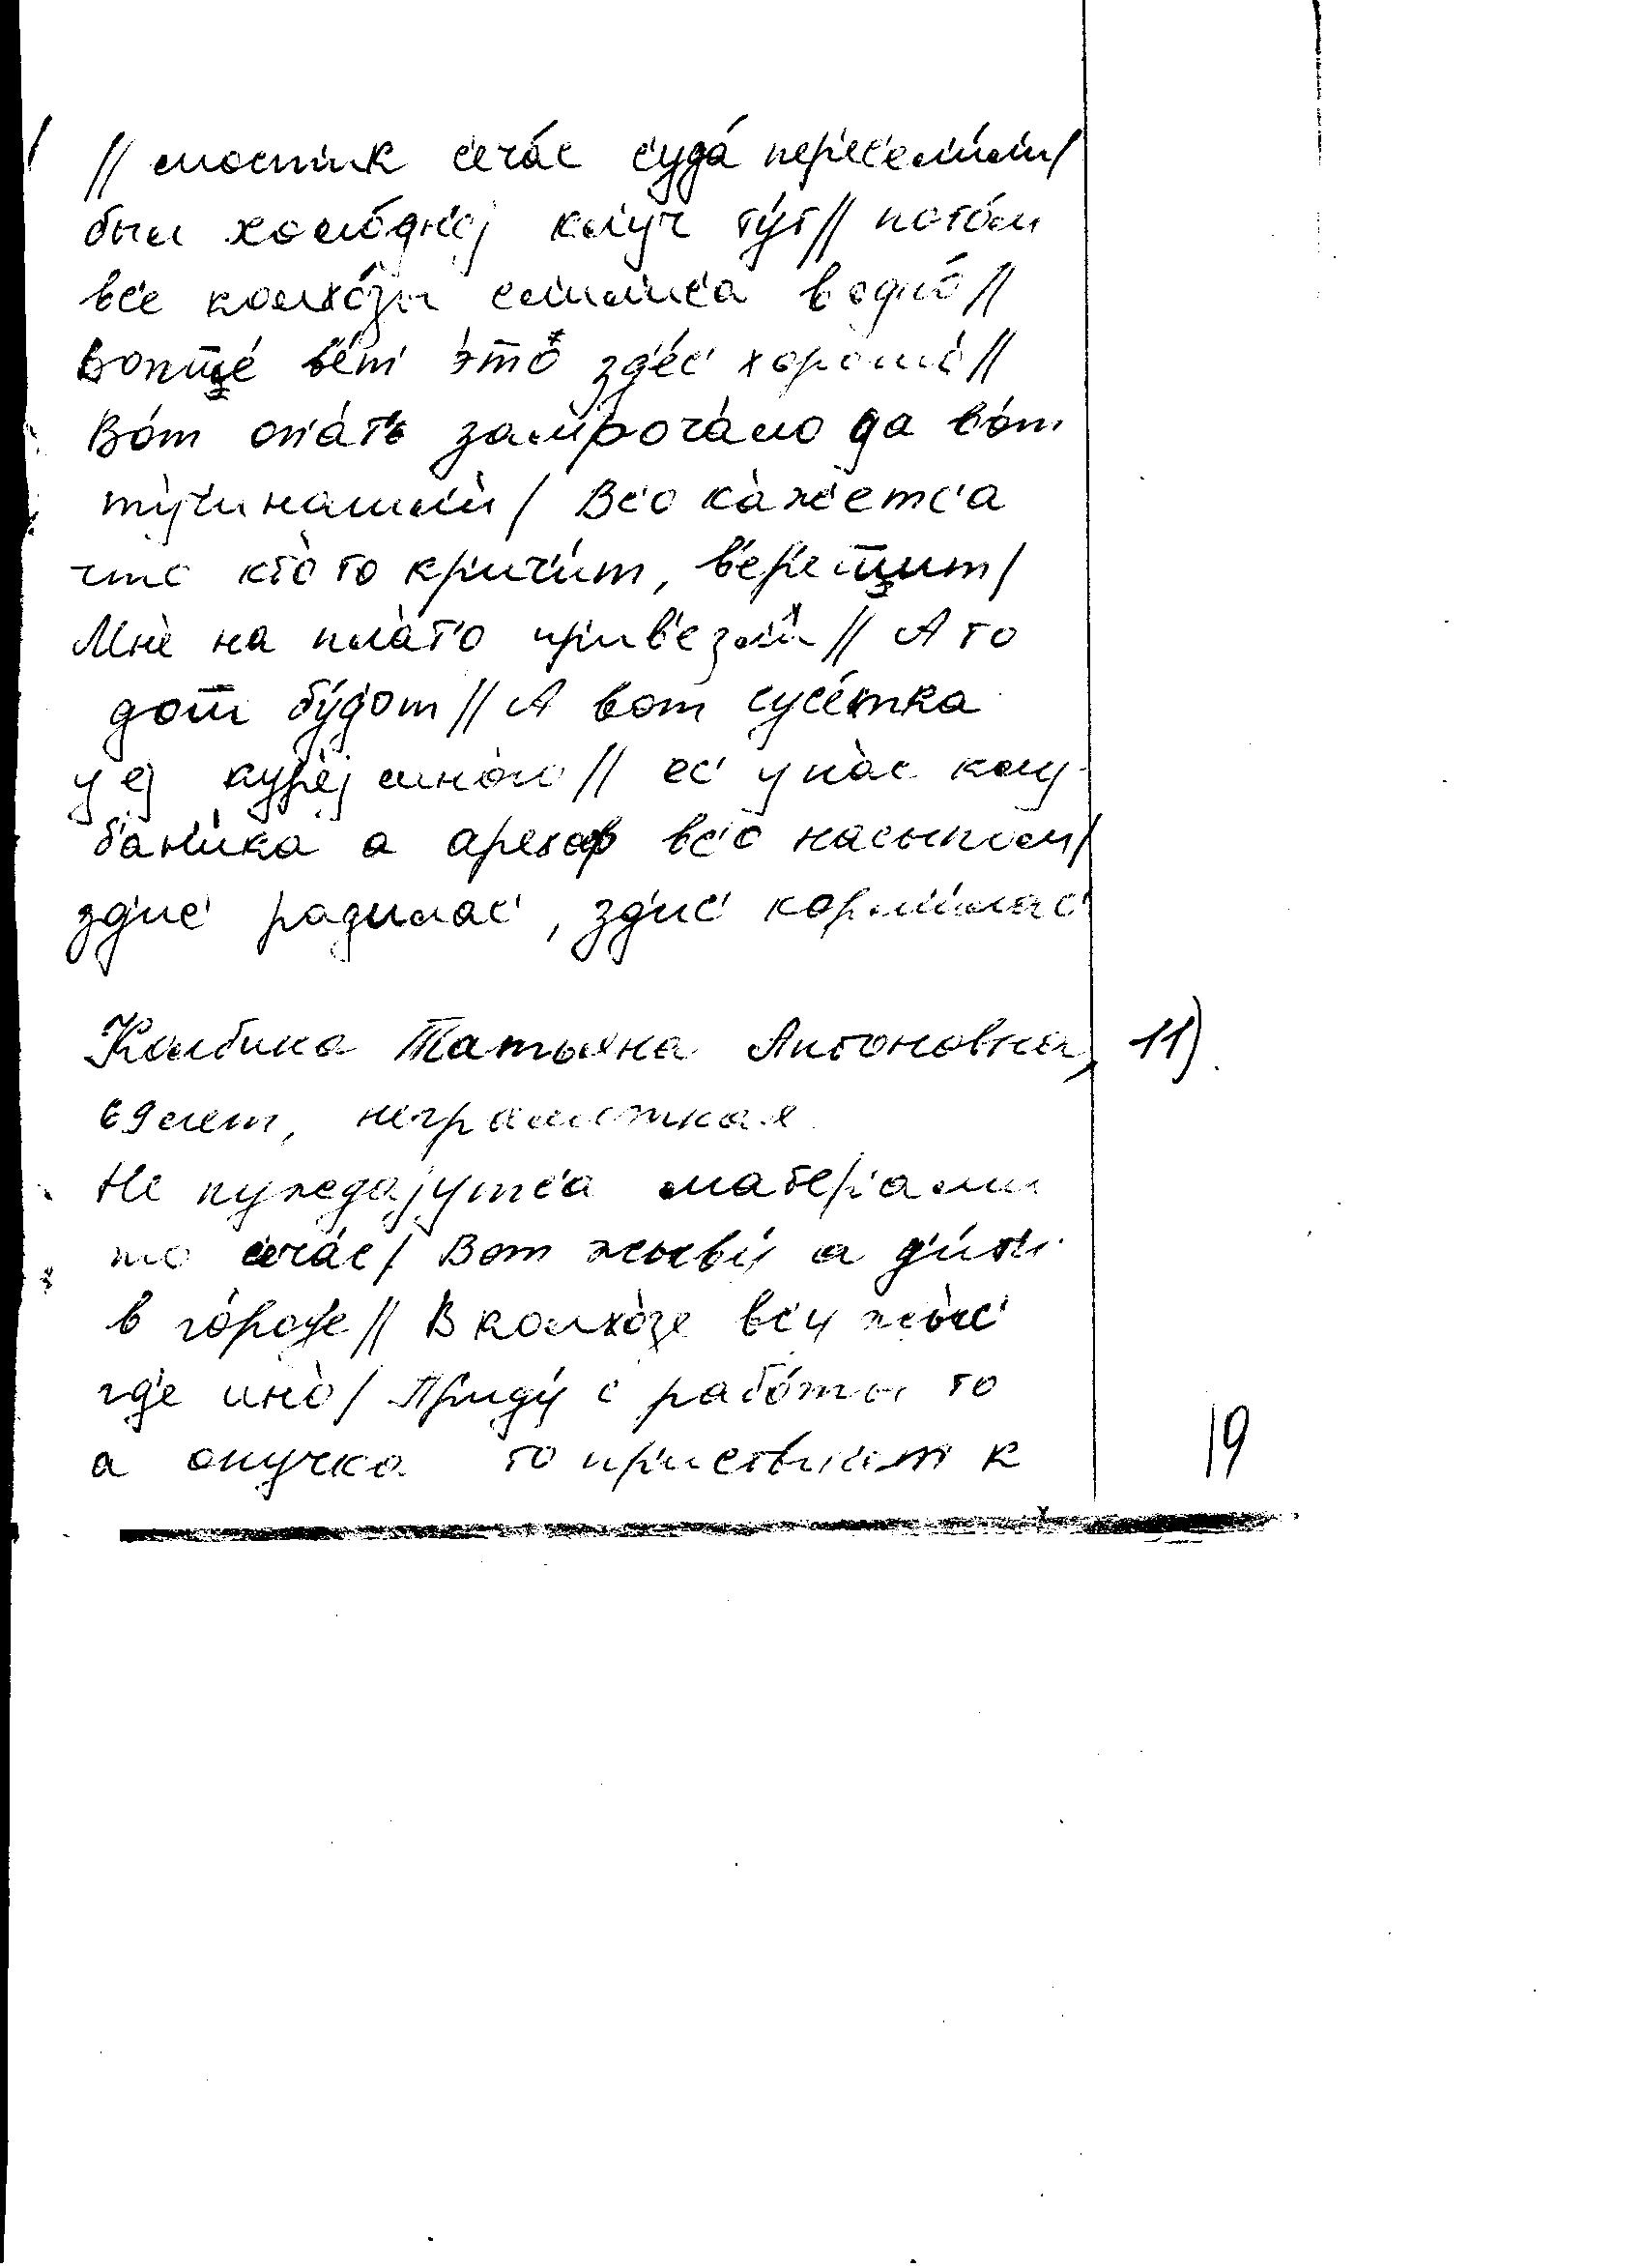 // мостик сеча́с суда́ пер'ес'ел'и́л'и/
был холо́д'н'еј кл'уч ту́т// пото́м
вс'е колхо́зы сл'ил'ис'а в одно́//
вопще́ в'ет' э́то зд'е́с' хорошо́//
Во́т оп'а́т' замро́чало да во́т
ту́чи нашл'и́/ Вс'о ка́жетс'а
что кто́ то кр'ич'и́т, в'ер'ещит/
Мн'е на пла́т'о пр'ив'езл'и́// А то
дощ бу́дот// А вот сус'е́тка
у еј кур'е́ј мно́го// ес' у нас клу-
бан'и́ка а орехоф вс'о насыпом/
зд'ис' разилас', зд'ис' корм'и́лас'
Колбина Татьяна Антоновна, 11)
69 лет, неграмотная
Не нуждајутс'а матер'алм
то сеча́с/ Вот жыву́ а д'и́ти
в го́род'е// В колхо́зе вс'у жы́с'
гд'е ино́/ Пр'иду́ с рабо́ты то
а онучка то пр'иствит к
19